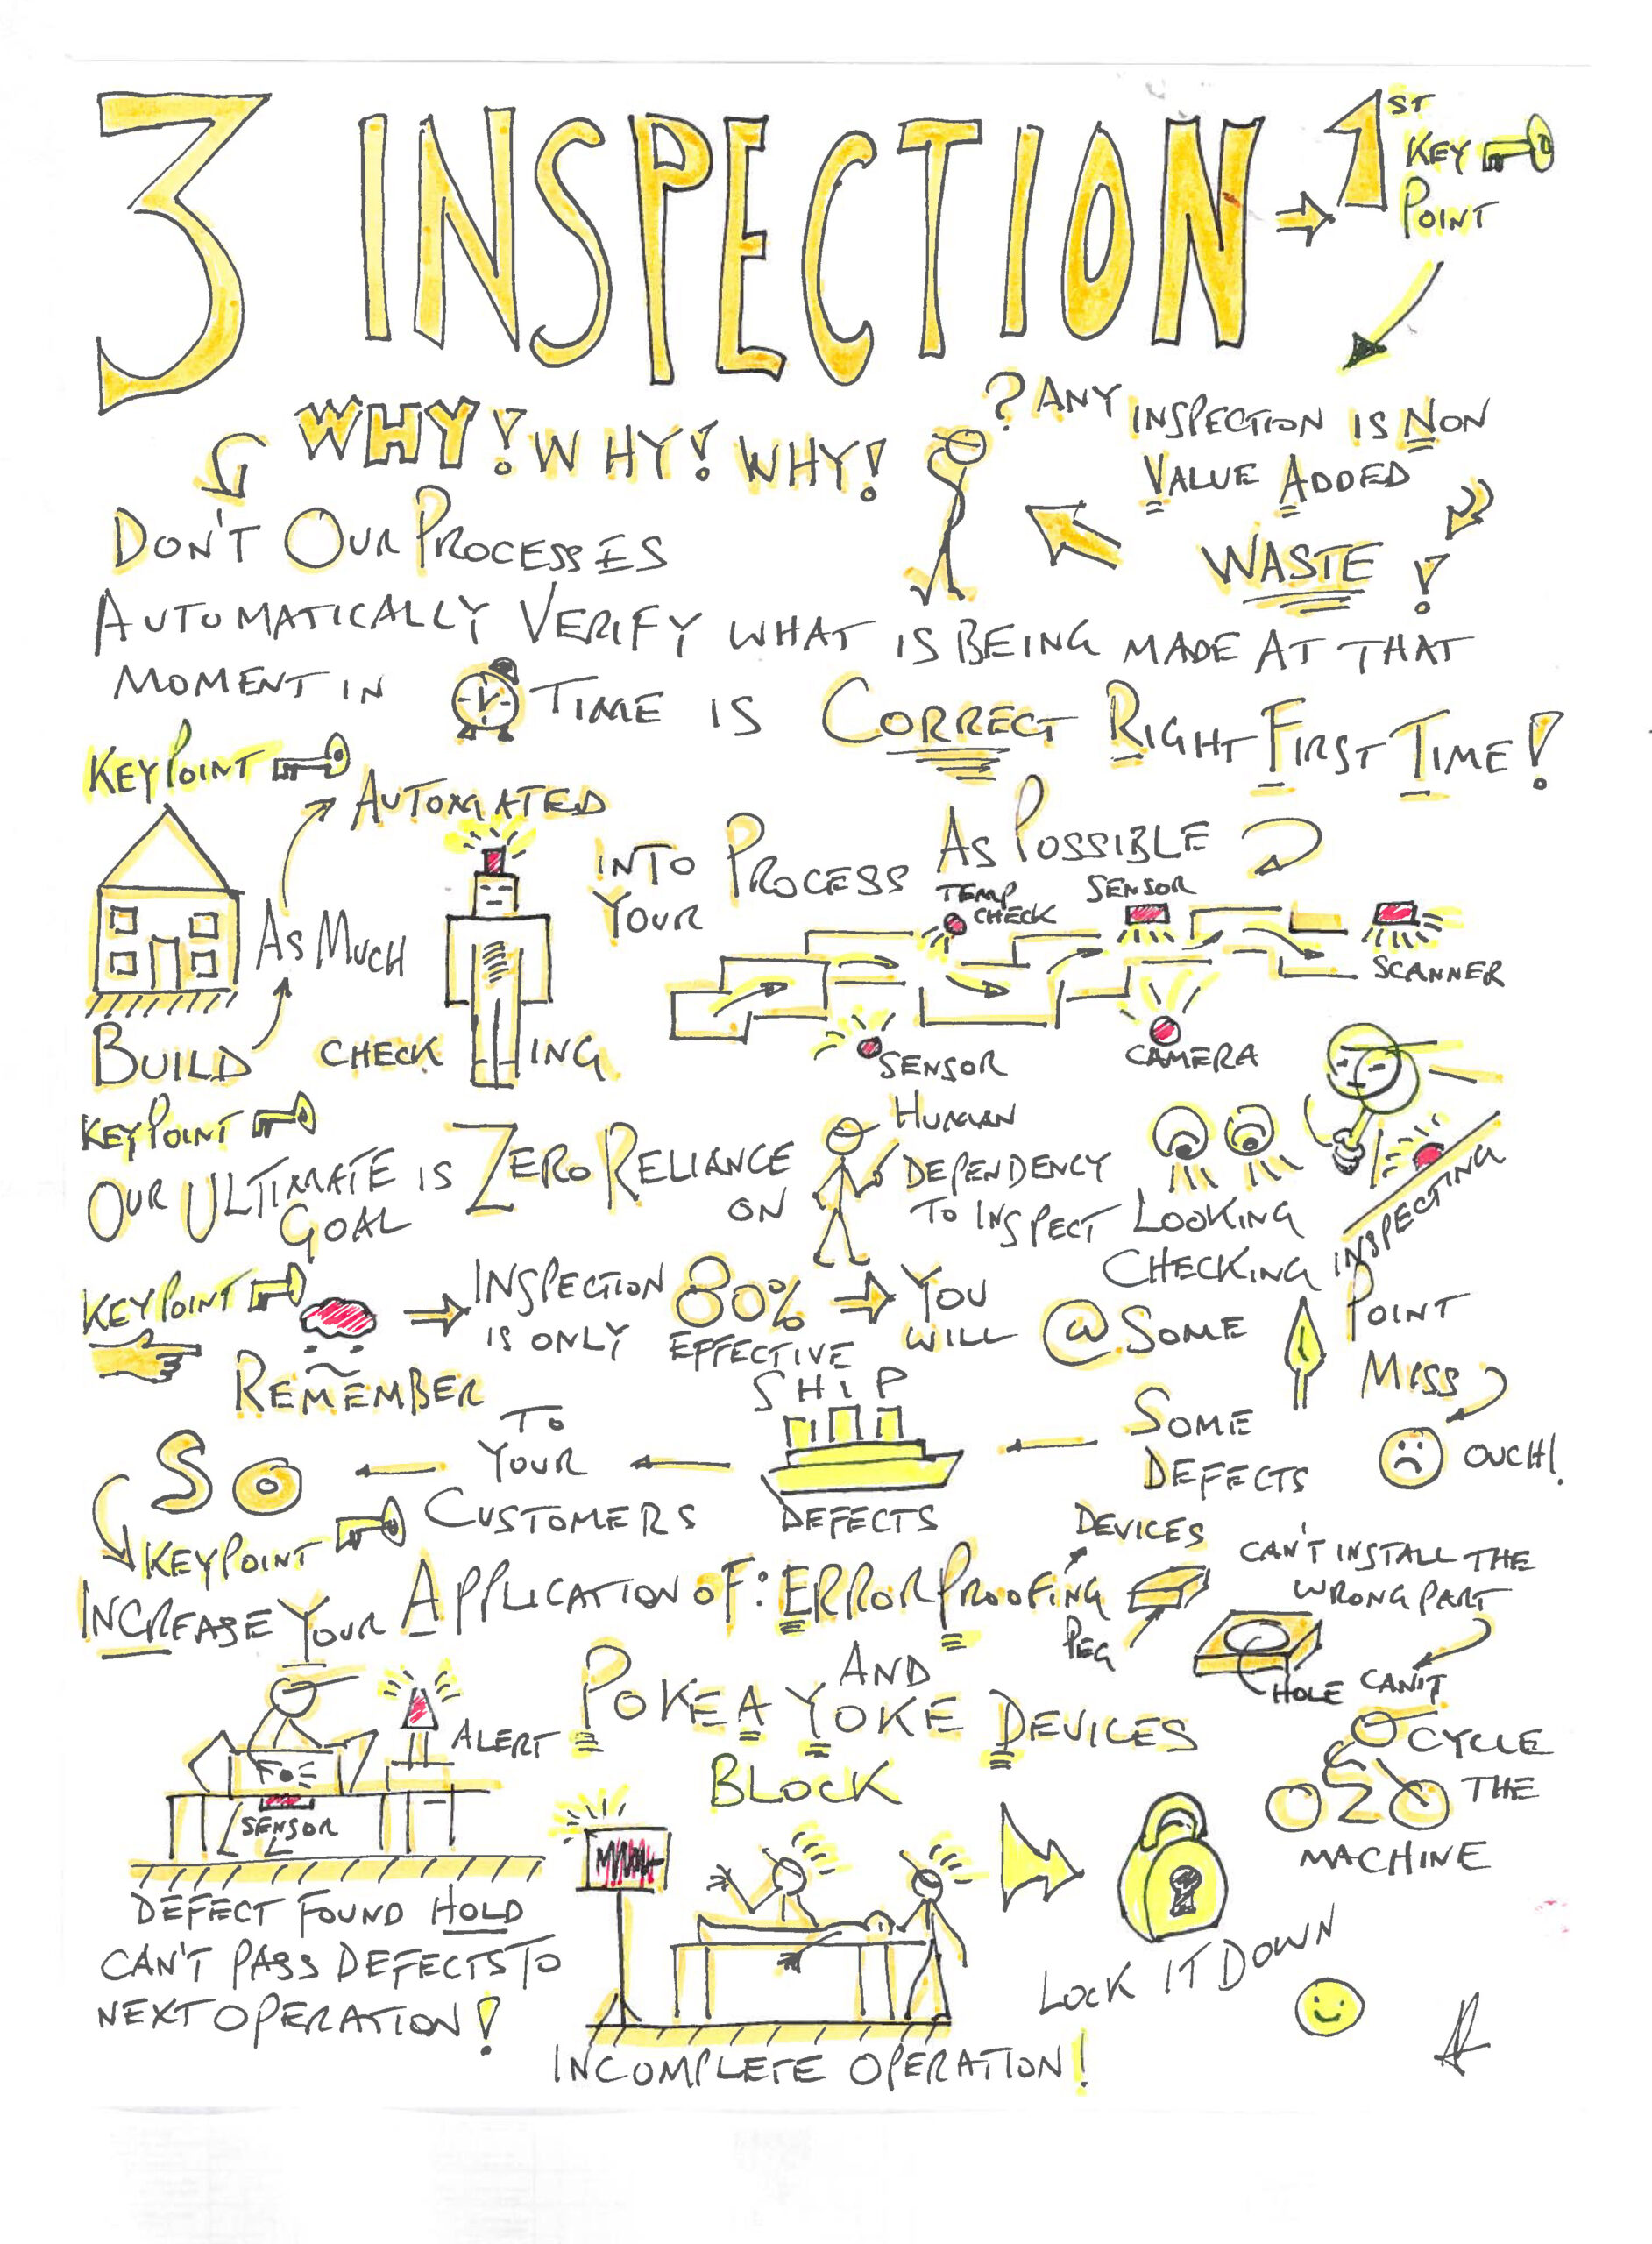 3 INSPECTION
1ST
KEY
POINT
? ANY INSPECTION IS NON
VALUE ADDED
WASTE!
WHY! WHY! WHY!
DON'T OUR PROCESSES
AUTOMATICALLY VERIFY WHAT IS BEING MADE AT THAT
MOMENT IN TIME IS CORRECT RIGHT FIRST TIME!
KEY POINT
BUILD
AS MUCH
AUTOMATED
CHECK ING
INTO YOUR PROCESS AS POSSIBLE
TEMP CHECK
SENSOR
SCANNER
SENSOR
CAMERA
KEY POINT
OUR ULTIMATE GOAL IS ZERO RELIANCE ON
HUMAN
DEPENDENCY
TO INSPECT LOOKING
CHECKING INSPECTING
KEY POINT
REMEMBER
INSPECTION
IS ONLY
80%
EFFECTIVE
YOU
WILL
@ SOME
POINT
MISS
OUCH!
SOME
DEFECTS
SHIP
DEFECTS
TO
YOUR
CUSTOMERS
SO
KEY POINT
INCREASE YOUR APPLICATION OF: ERROR PROOFING
DEVICES
PEG
HOLE
CAN'T INSTALL THE
WRONG PART
AND
POKE A YOKE DEVICES
ALERT
SENSOR
DEFECT FOUND HOLD
CAN'T PASS DEFECTS TO
NEXT OPERATION!
BLOCK
INCOMPLETE OPERATION!
LOCK IT DOWN
CAN'T
CYCLE
THE
MACHINE